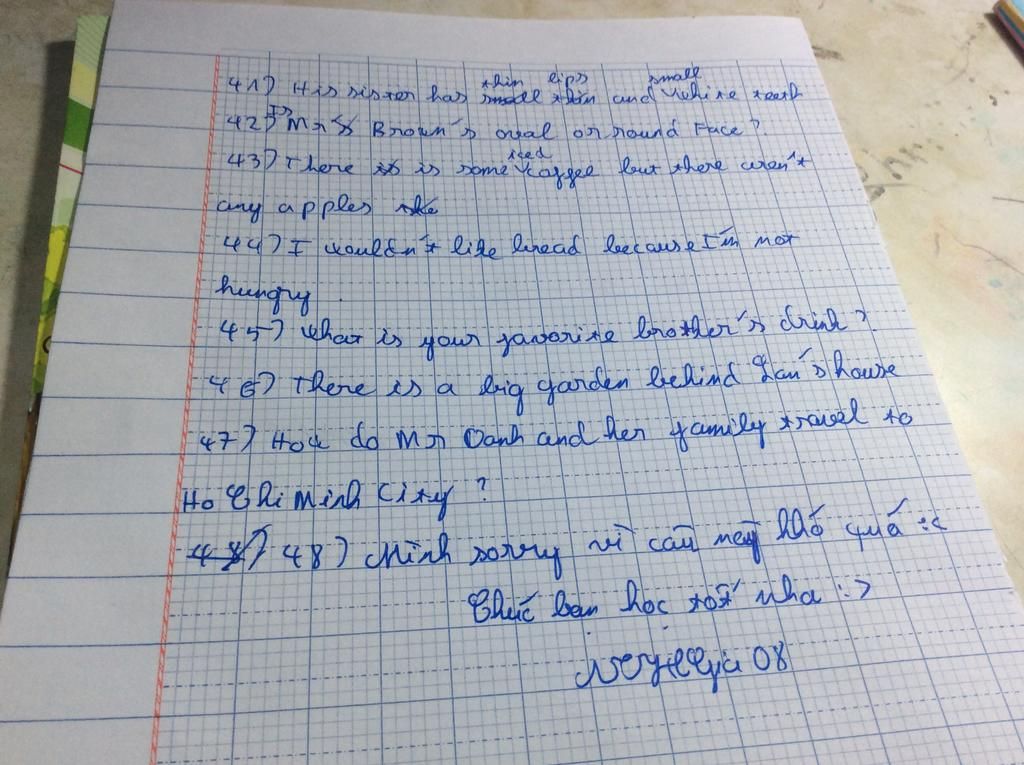 41) His sister has thin lips and small white teeth
42) Is Mr's Brown's oval or round Face?
43) There is some iced coffee but there aren't
any apples
44) I wouldn't like bread because I'm not
hungry.
45) What is your favorite brother's drink?
46) There is a big garden behind Lan's house
47) How do Mr Oanh and her family travel to
Ho Chi Minh City?
48) Mình sorry vì câu này khó quá :<
Chúc bạn học tốt nha :>